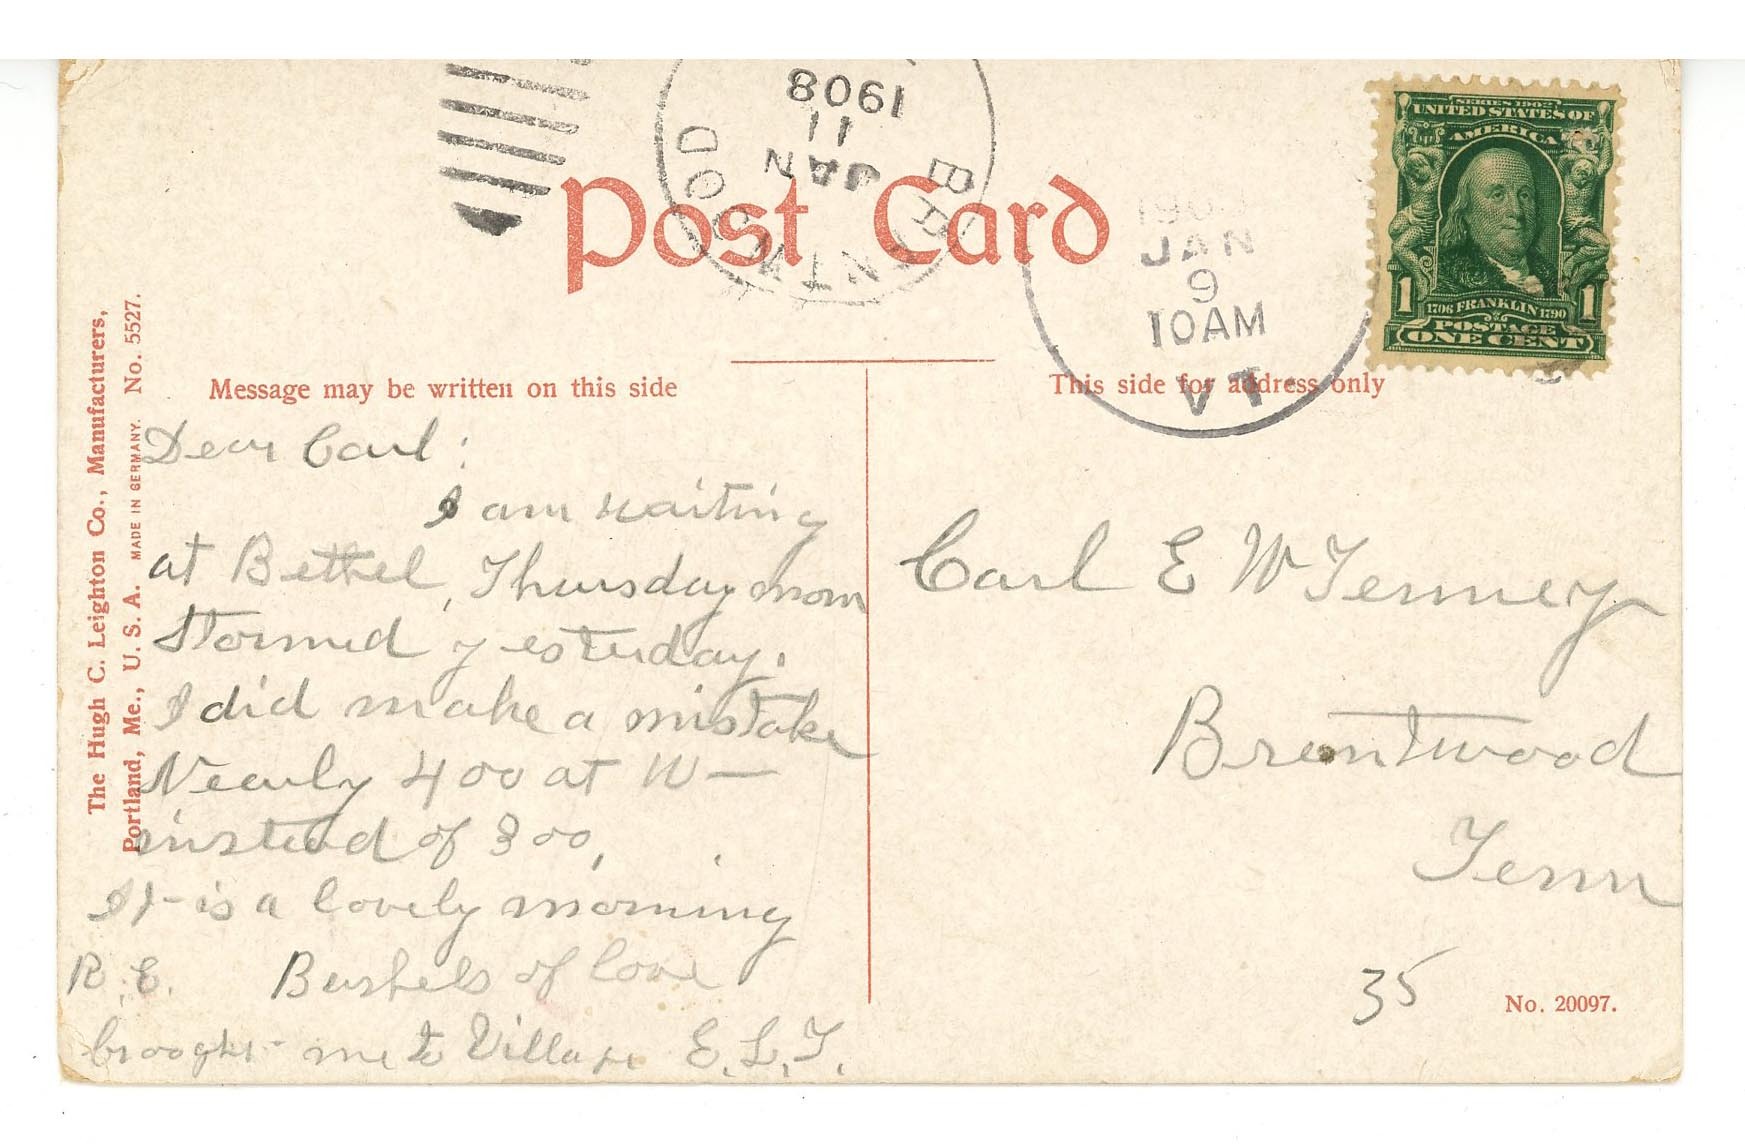 1908
11
JAN
BRENTWOOD
Post Card
JAN
9
10AM
VT.
SERIES 1902
UNITED STATES OF
AMERICA
1 1
1706 FRANKLIN 1790
POSTAGE
ONE CENT
The Hugh C. Leighton Co., Manufacturers,
Portland, Me., U. S. A. MADE IN GERMANY. No. 5527.
Message may be written on this side
Dear Carl:
I am waiting
at Bethel, Thursday morn
Stormed yesterday.
I did make a mistake
Nearly 400 at W—
instead of 300,
It is a lovely morning
R. E. Bushels of love
brought me to Village E. L. T.
This side for address only
Carl E W Tenney
Brentwood
Tenn
35
No. 20097.